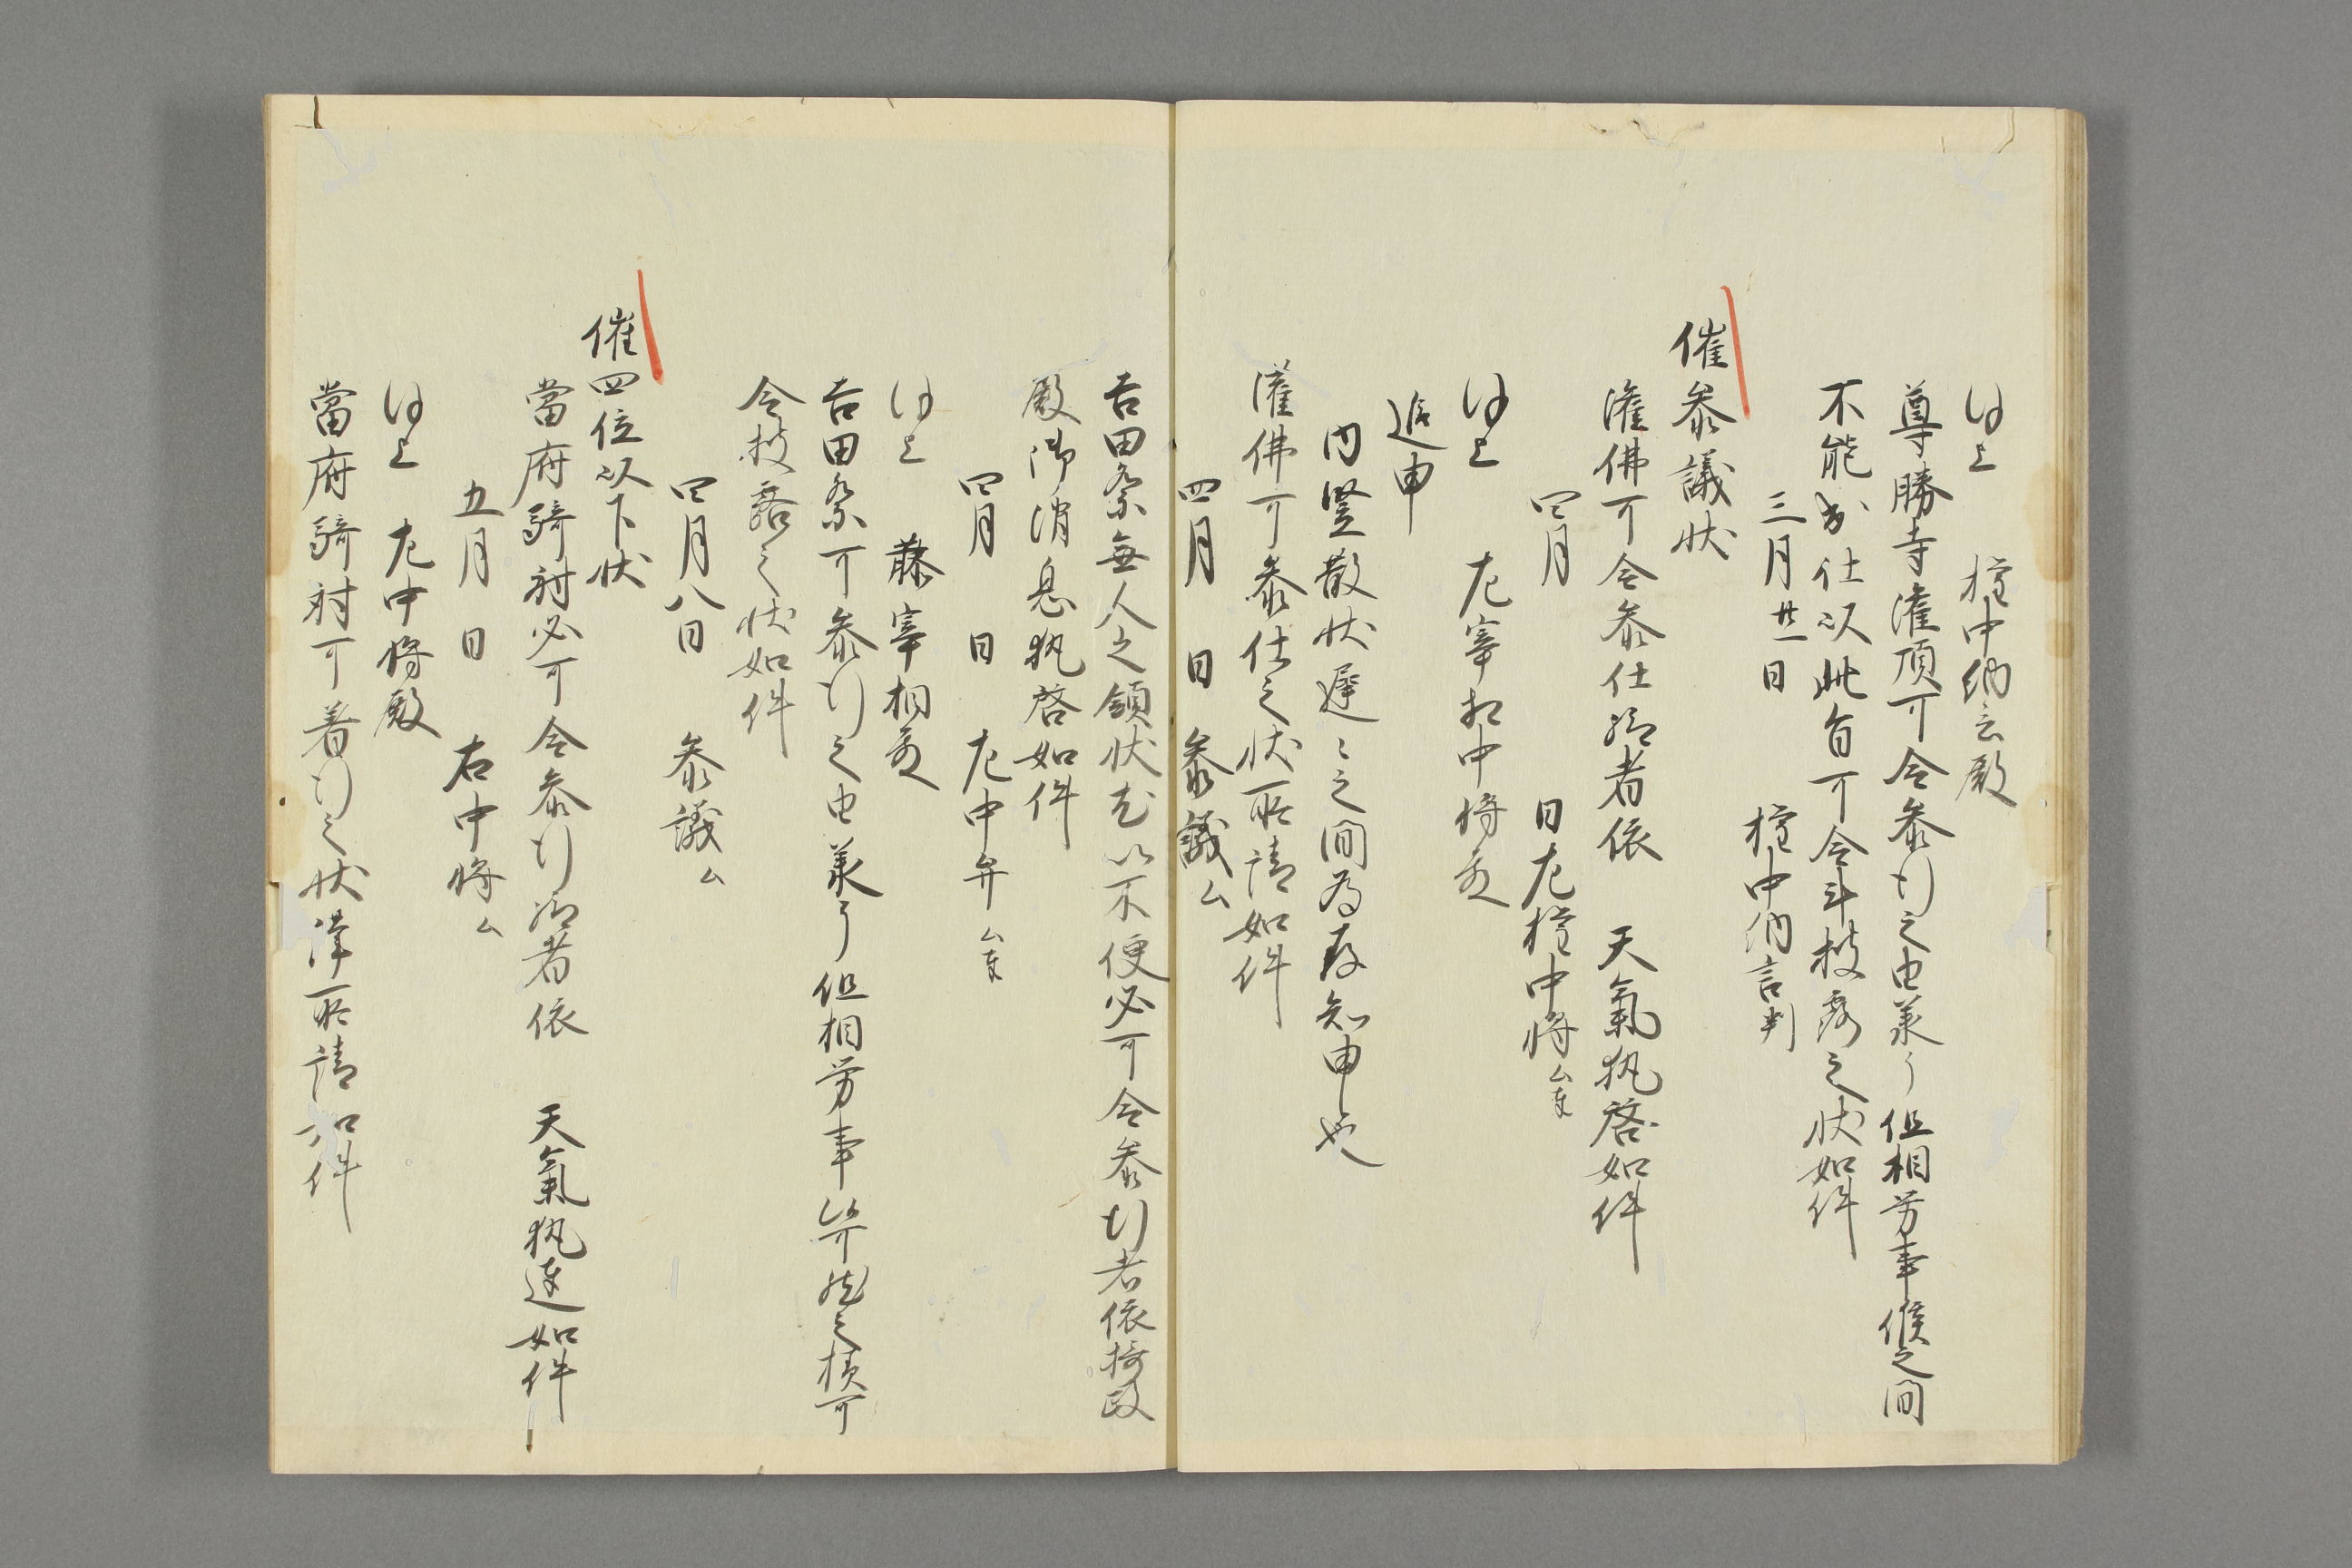 謹上　権中納言殿
尊勝寺灌頂可令参行之由美了但相労事候之間
不能出仕以此旨可令計披露之状如件
三月廿一日　権中納言判
催参議状
灌佛可令参仕給者依　天氣執啓如件
四月　日左権中将ム奉
謹上　左宰相中将殿
追申
内竪散状遅々之間為存知申也
灌佛可参仕之状所請如件
四月　日　参議ム
吉田祭無人之領状尤以不便必可令参行者依摂政
殿御消息執啓如件
四月　日　左中弁ム奉
謹上　藤宰相殿
吉田祭可参行之由承了但相労事等可然之様可
令披露之状如件
四月八日　参議ム
催四位以下状
當府騎射必可令参行給者依　天氣執達如件
五月　日　右中将ム
謹上　左中将殿
當府騎射可着行之状謹所請如件